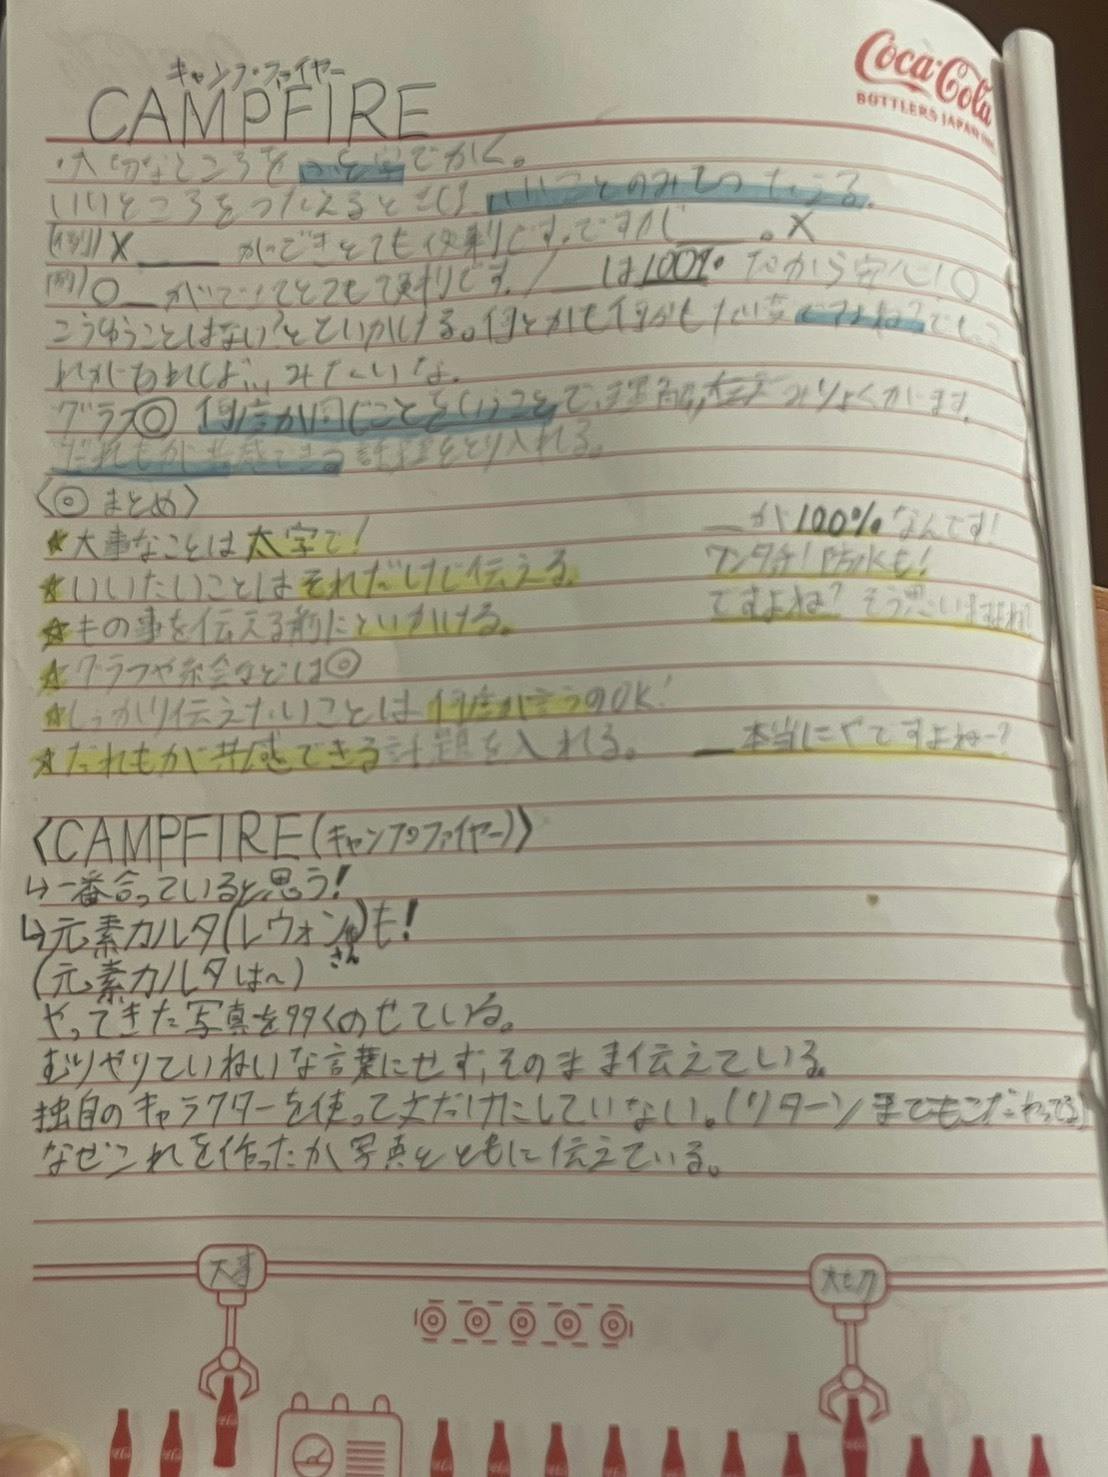 キャンプ・ファイヤー
CAMPFIRE
Coca-Cola
BOTTLERS JAPAN
・大切なところを太字でかく。
いいところをつたえるときは、いいことのみをつたえる。
(例)X____ ができとても便利です。ですが____。X
(例)○__ができてとても便利です!__は100% だから安心!○
こうゆうことはない?とといかける。何とかも何かも大変ですよね?でもこ
れがあればょ… みたいな。
グラフ◎ 何言か同じことをいうことで、理解、みりょくがます。
だれもが共感できる 話題をとり入れる。
〈◎まとめ〉
★大事なことは太字で!
__が100%なんです!
★いいたいことはそれだけじ伝える。
ワンタッチ!防水も!
★もの事を伝える前にといかける。
ですよね? そう思いますよね!
★グラフや絵などは◎
★しっかり伝えたいことは何度か言うのOK!
★だれもが共感できる話題を入れる。
__本当にやですよねー?
〈CAMPFIRE(キャンプ・ファイヤー)〉
↳一番合っていると思う!
↳元素カルタ(レウォンさん)も!
(元素カルタは〜)
やってきた写真を多くのせている。
むりやりていねいな言葉にせず、そのまま伝えている。
独自のキャラクターを使って文だけにしていない。(リターンまでもこだわってる)
なぜこれを作ったか写真とともに伝えている。
大事
大切